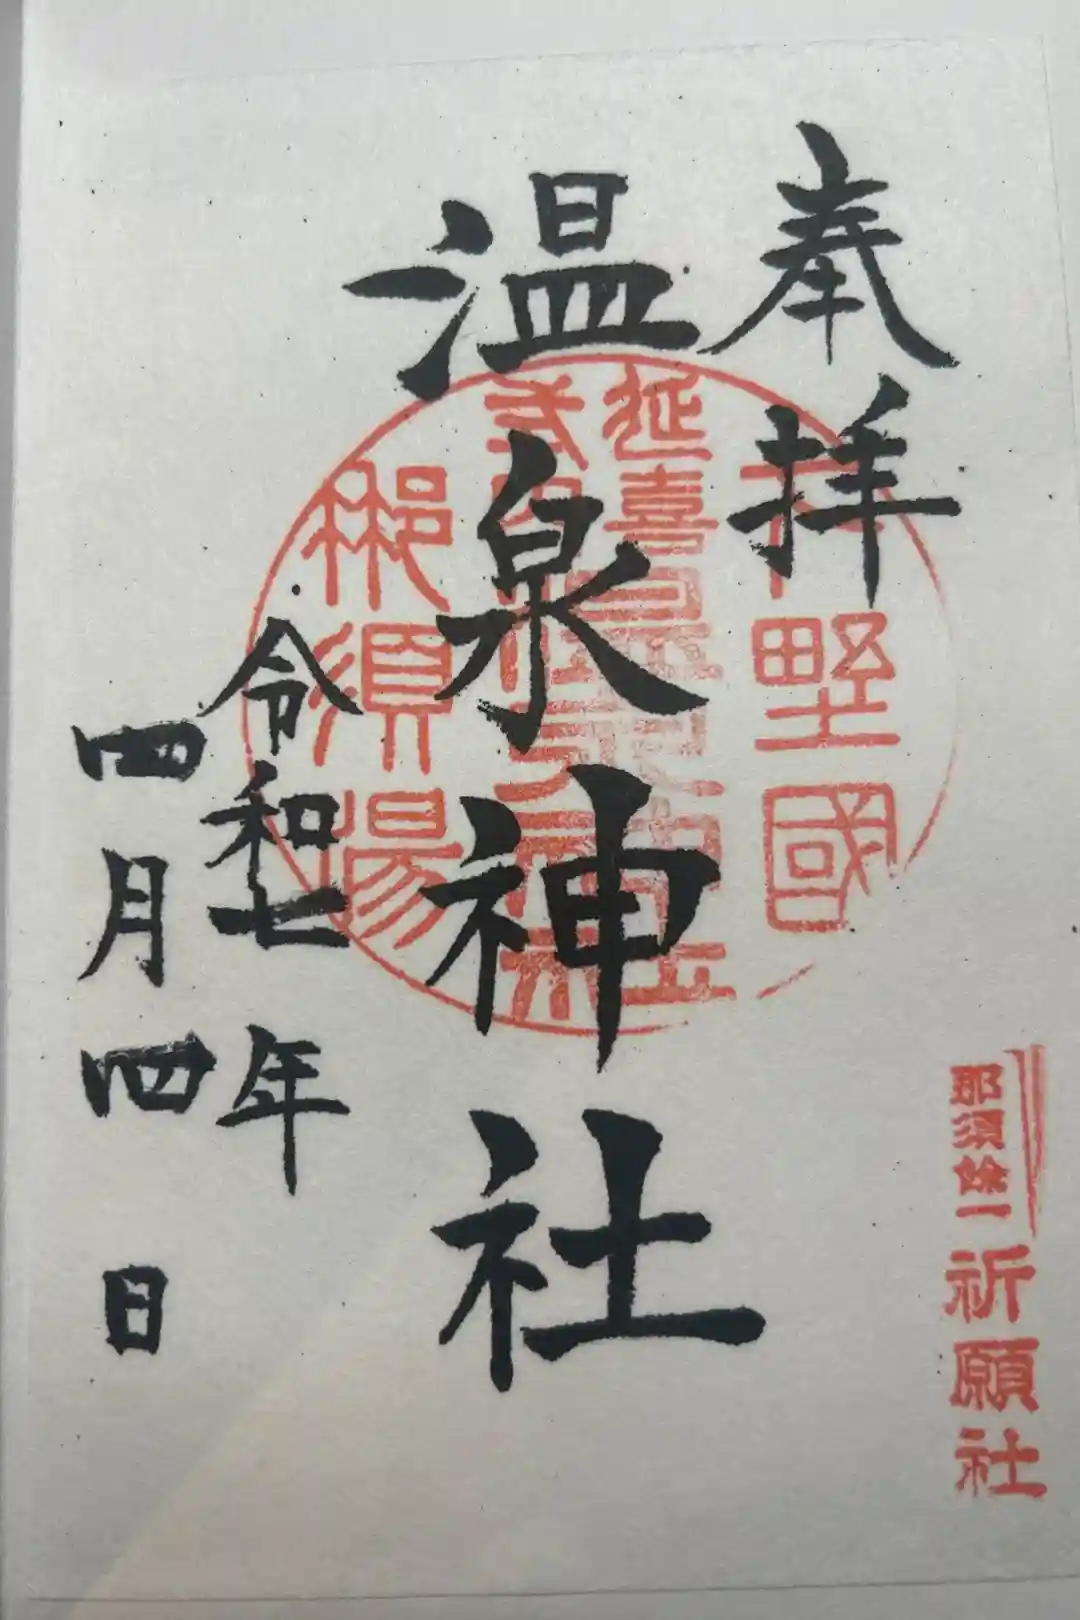 奉拝
温泉神社
令和七年
四月四日
下野國
延喜
那須湯
那須餘一
祈願社